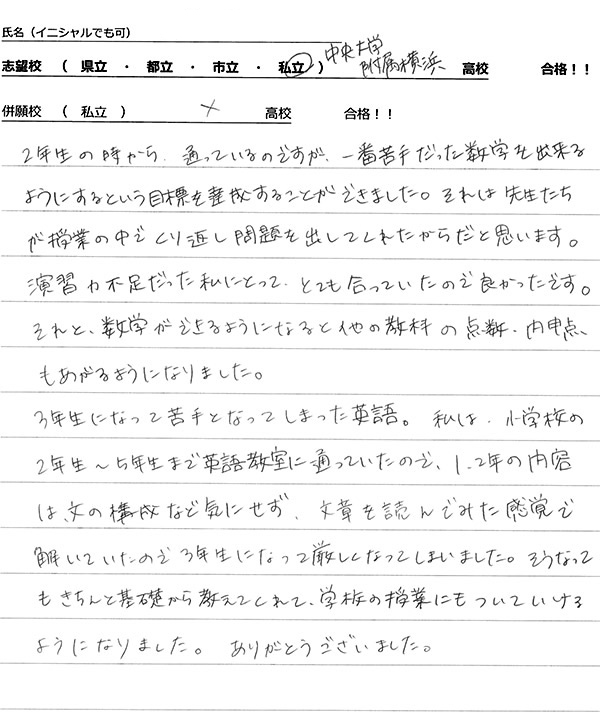 氏名（イニシャルでも可）
志望校 （ 県立 ・ 都立 ・ 市立 ・ 私立 ） 中央大学附属横浜 高校 合格！！
併願校 （ 私立 ） × 高校 合格！！
2年生の時から、通っているのですが、一番苦手だった数学を出来る
ようにするという目標を達成することができました。それは先生たち
が授業の中でくり返し問題を出してくれたからだと思います。
演習力不足だった私にとって、とても合っていたので良かったです。
それと、数学ができるようになると他の教科の点数、内申点、
もあがるようになりました。
3年生になって苦手となってしまった英語。私は、小学校の
2年生～5年生まで英語教室に通っていたので、1、2年の内容
は、文の構成など気にせず、文章を読んでみた感覚で
解いていたので3年生になって厳しくなってしまいました。そうなって
もきちんと基礎から教えてくれて、学校の授業にもついていける
ようになりました。ありがとうございました。